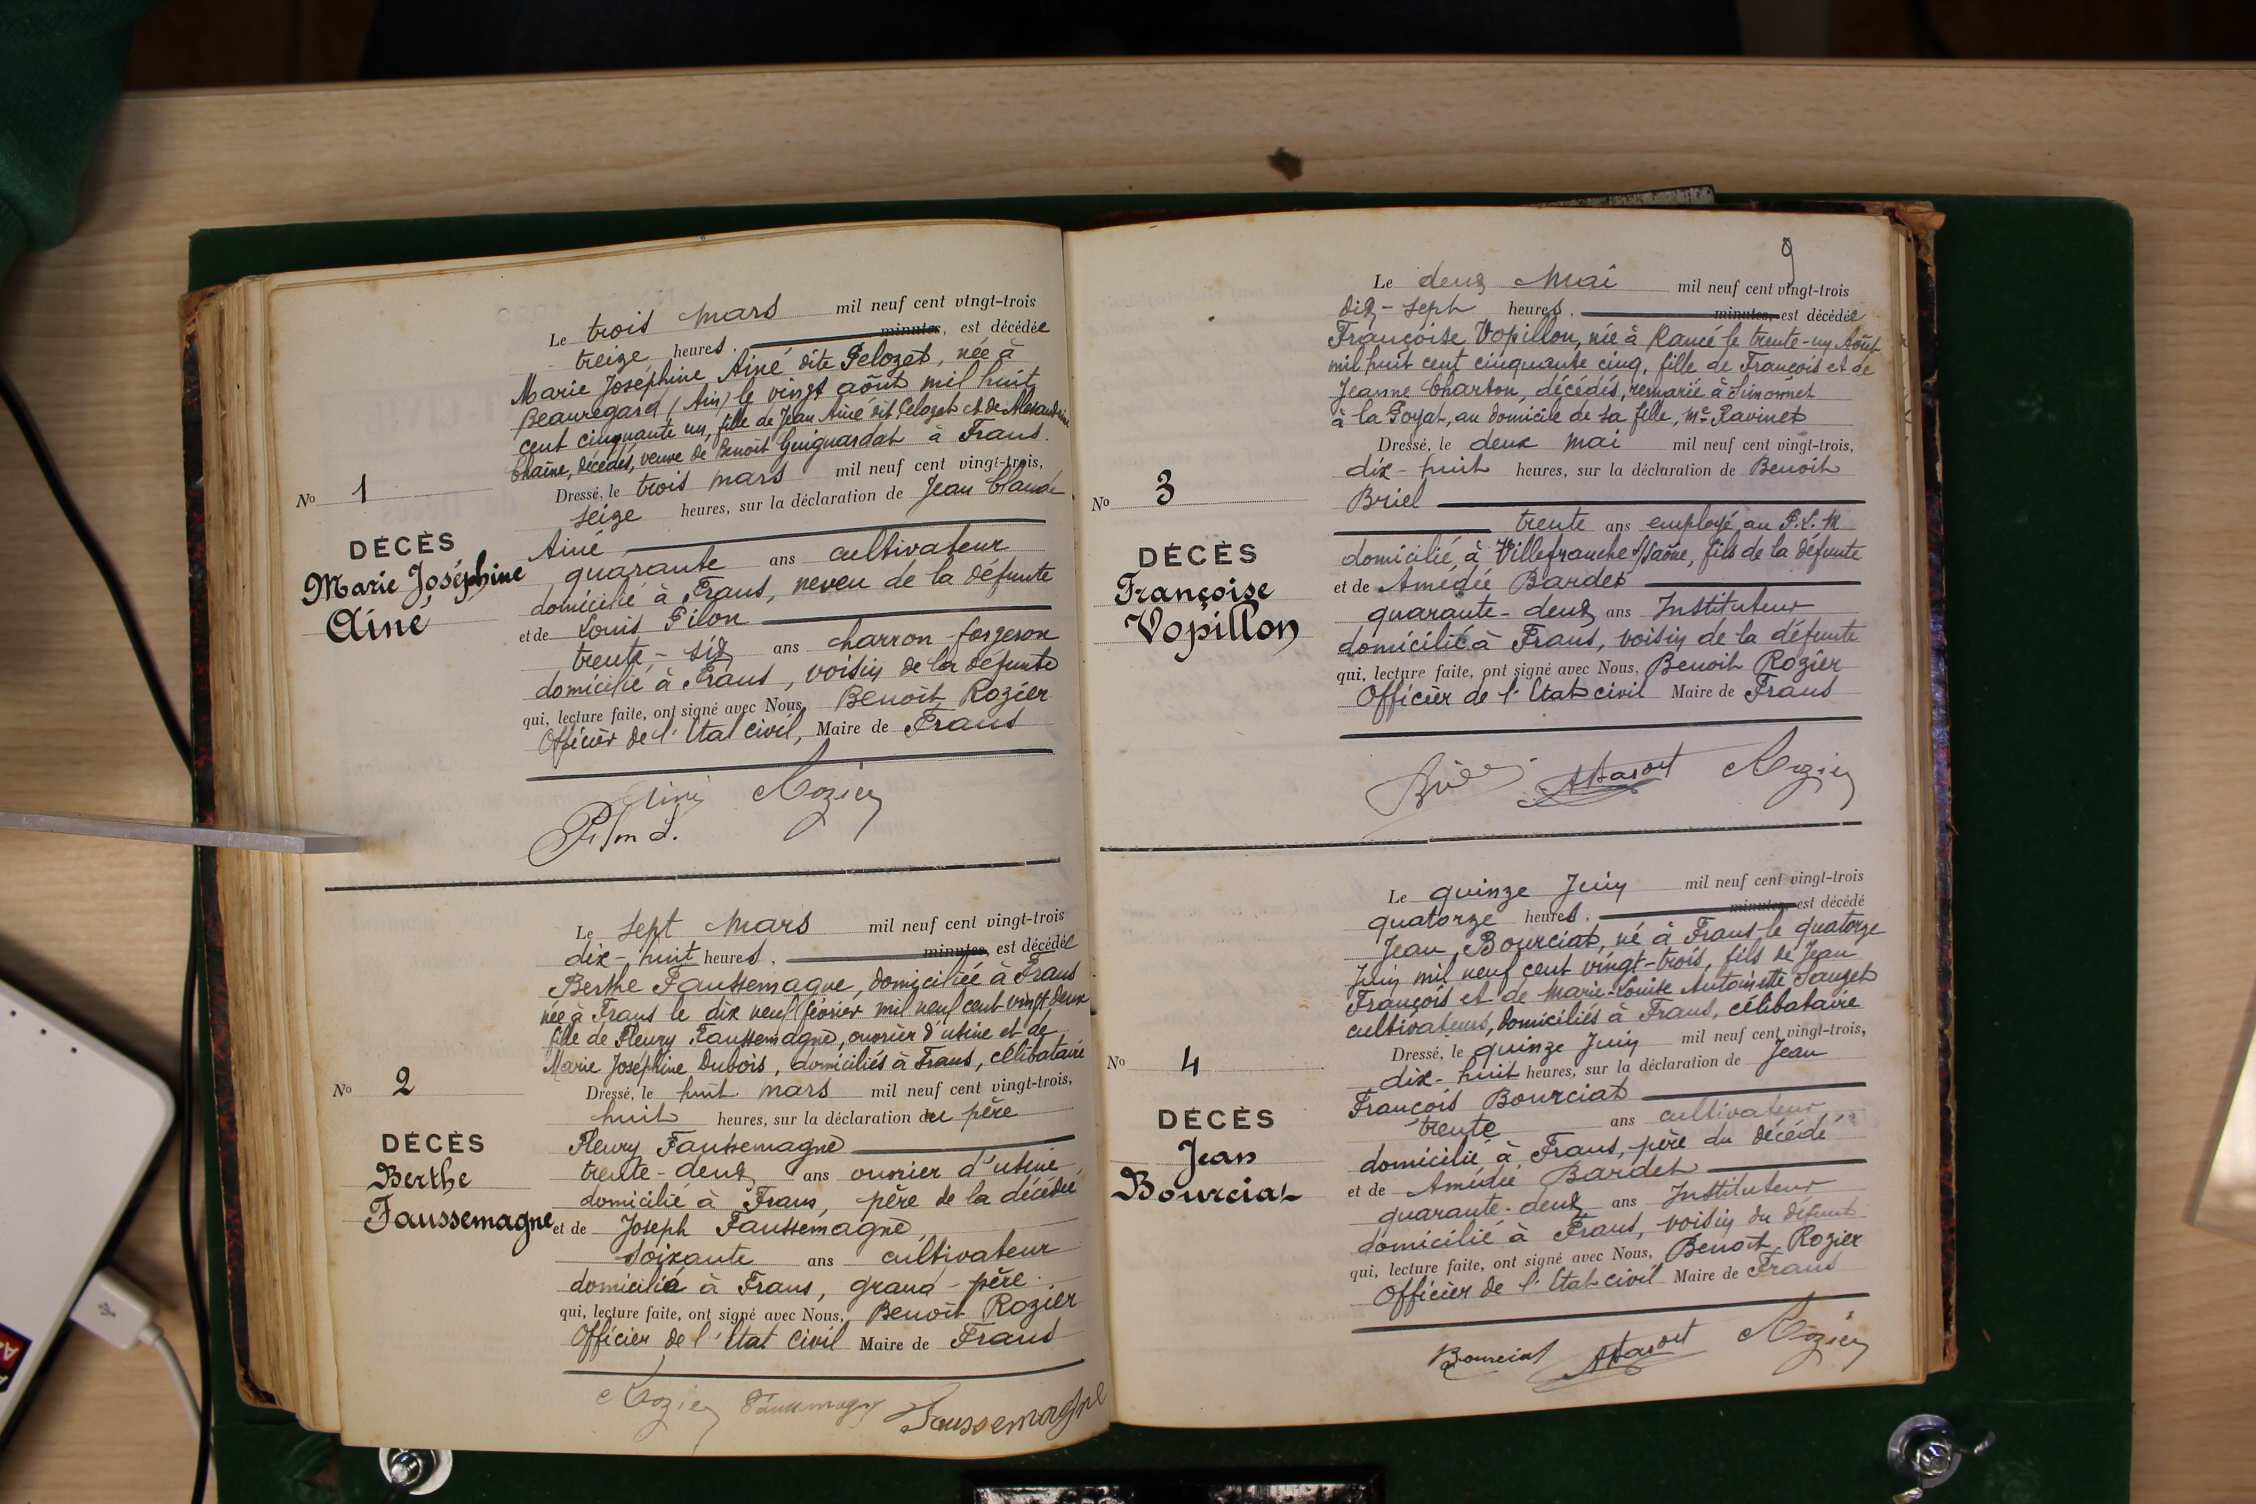 Le trois mars mil neuf cent vingt-trois
treize heures. minutes, est décédée
Marie Joséphine Ainé dite Pelozet, née à
Beauregard (Ain) le vingt août mil huit
cent cinquante un, fille de Jean Ainé dit Pelozet et de Alexandrine
Chaîne, décédés, veuve de Benoît Guignardat à Frans.
Dressé, le trois mars mil neuf cent vingt-trois,
seize heures, sur la déclaration de Jean Claude
Ainé
quarante ans cultivateur
domicilié à Frans, neveu de la défunte
et de Louis Pilon
trente-six ans charron-forgeron
domicilié à Frans, voisin de la défunte
qui, lecture faite, ont signé avec Nous, Benoît Rozier
Officier de l'Etat civil, Maire de Frans
No 1
DÉCÈS
Marie Joséphine
Ainé
Ainé Rozier
Pilon L.
Le sept mars mil neuf cent vingt-trois
dix-huit heures. minutes, est décédée
Berthe Faussemagne, domiciliée à Frans
née à Frans le dix neuf février mil neuf cent vingt deux
fille de Fleury Faussemagne, ouvrier d'usine et de
Marie Joséphine Dubois, domiciliés à Frans, célibataire
Dressé, le huit mars mil neuf cent vingt-trois,
huit heures, sur la déclaration du père
Fleury Faussemagne
trente-deux ans ouvrier d'usine,
domicilié à Frans, père de la décédée
et de Joseph Faussemagne,
soixante ans cultivateur
domicilié à Frans, grand-père.
qui, lecture faite, ont signé avec Nous, Benoît Rozier
Officier de l'Etat Civil Maire de Frans
No 2
DÉCÈS
Berthe
Faussemagne
Rozier Faussemagne Faussemagne
9
Le deux Mai mil neuf cent vingt-trois
dix-sept heures. minutes, est décédée
Françoise Vopillon, née à Rancé le trente-un Août
mil huit cent cinquante cinq, fille de François et de
Jeanne Charton, décédés, remarié à Simonnet
à la Poyat, au domicile de sa fille, Me Ravinet
Dressé, le deux mai mil neuf cent vingt-trois,
dix-huit heures, sur la déclaration de Benoit
Briel
trente ans employé au P.L.M
domicilié à Villefranche s/Saône, fils de la défunte
et de Amédée Bardet
quarante-deux ans Instituteur
domicilié à Frans, voisin de la défunte
qui, lecture faite, ont signé avec Nous, Benoit Rozier
Officier de l'Etat civil Maire de Frans
No 3
DÉCÈS
Françoise
Vopillon
Rozier
Le quinze Juin mil neuf cent vingt-trois
quatorze heures. minutes, est décédé
Jean Bourciat, né à Frans le quatorze
Juin mil neuf cent vingt-trois, fils de Jean
François et de Marie-Louise Antoinette Sauzet
cultivateurs, domiciliés à Frans, célibataire
Dressé, le quinze Juin mil neuf cent vingt-trois,
dix-huit heures, sur la déclaration de Jean
François Bourciat
trente ans cultivateur
domicilié à Frans, père du décédé
et de Amédée Bardet
quarante-deux ans Instituteur
domicilié à Frans, voisin du défunt
qui, lecture faite, ont signé avec Nous, Benoît Rozier
Officier de l'Etat civil Maire de Frans
No 4
DÉCÈS
Jean
Bourciat
Bourciat Rozier